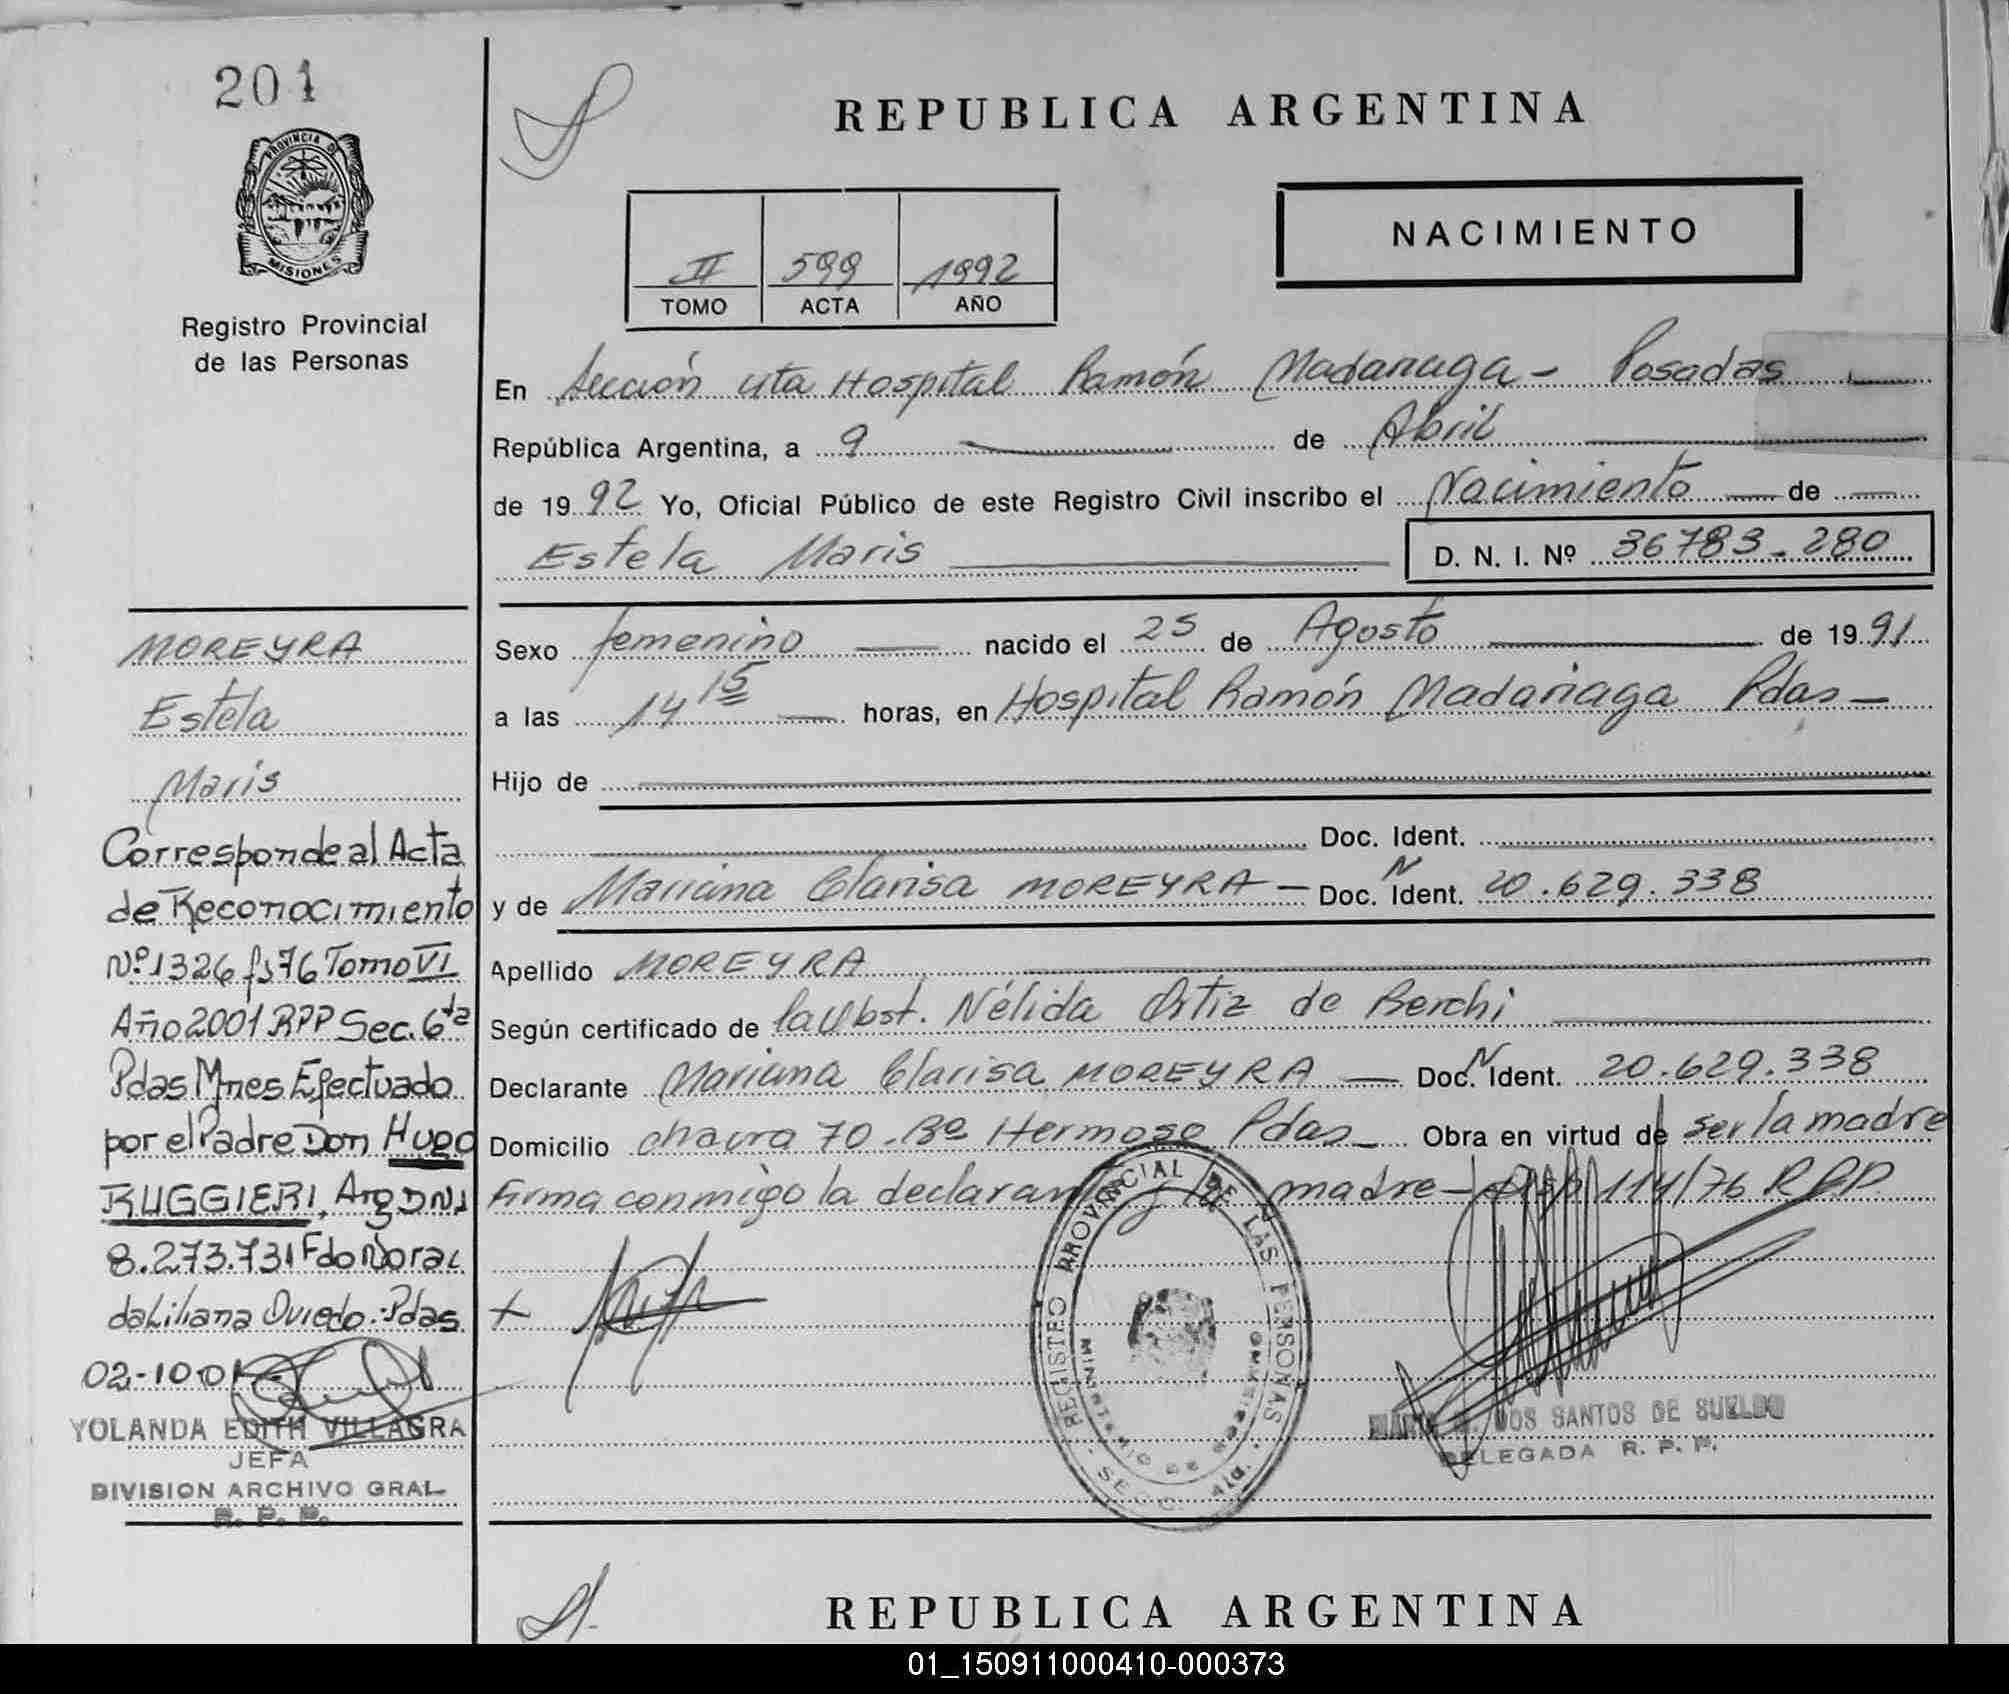 201
PROVINCIA D
MISIONES
Registro Provincial
de las Personas
REPUBLICA ARGENTINA
NACIMIENTO
II 599 1992
TOMO ACTA AÑO
En Sección 4ta Hospital Ramón Madariaga - Posadas
República Argentina, a 9 de Abril
de 1992 Yo, Oficial Público de este Registro Civil inscribo el Nacimiento de
Estela Maris D. N. I. Nº 36783.280
Sexo femenino nacido el 25 de Agosto de 1991
a las 14 15 horas, en Hospital Ramón Madariaga Pdas -
Hijo de
Doc. Ident.
y de Mariana Clarisa MOREYRA - Doc. N Ident. 20.629.338
Apellido MOREYRA
Según certificado de la Obst. Nélida Ortiz de Berchi
Declarante Mariana Clarisa MOREYRA - Doc. N Ident. 20.629.338
Domicilio chacra 70 - Bº Hermoso Pdas - Obra en virtud de ser la madre
Firma conmigo la declarante y la madre - Disp 114/76 RPP
MOREYRA
Estela
Maris
Corresponde al Acta
de Reconocimiento
Nº 1326 fs 76 Tomo VI
Año 2001 RPP Sec. 6ta
Pdas Mnes Efectuado
por el Padre Don Hugo
RUGGIERI, Arg DNI
8.273.731 Fdo Nora L
da Liliana Oviedo. Pdas
02-10-01
YOLANDA EDITH VILLAGRA
JEFA
DIVISION ARCHIVO GRAL
R. P. P.
+
REGISTRO PROVINCIAL DE LAS PERSONAS
MINISTERIO DE GOBIERNO
DOS SANTOS DE SUELDO
DELEGADA R. P. P.
REPUBLICA ARGENTINA
01_150911000410-000373